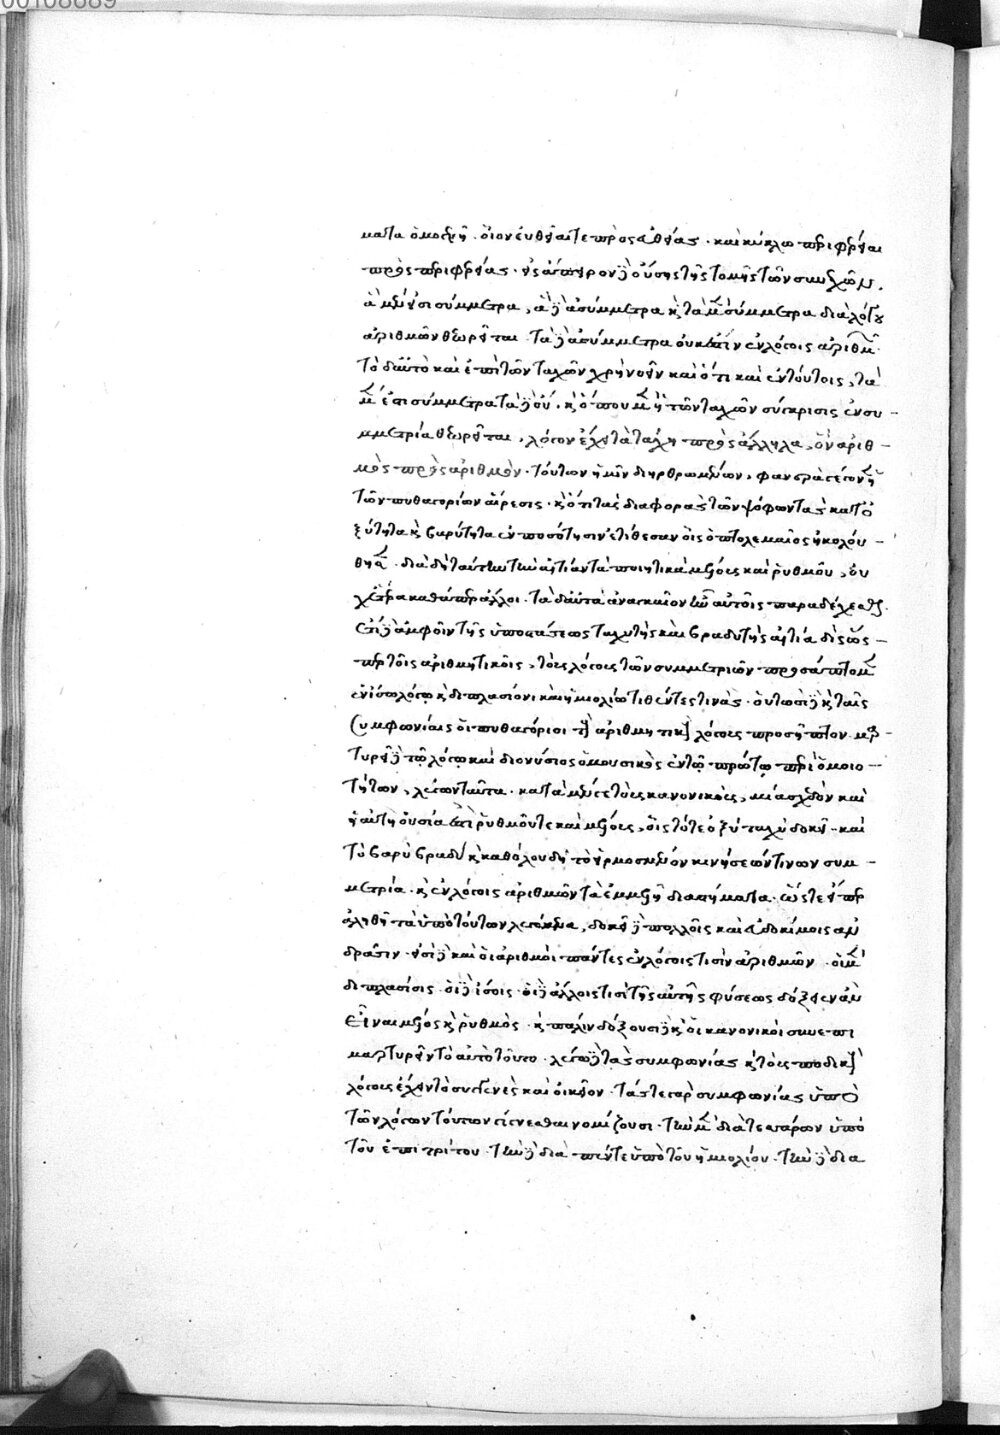 00108689
ματα ὁμοειδῆ. οἷον εὐθεῖαί τε πρὸς εὐθείας. καὶ κύκλω περιφέρειαι
πρὸς περιφερείας. εἰς ἄπειρον δὲ οὔσης τῆς τομῆς τῶν συνεχῶν.
ἃ μέν εἰσι σύμμετρα, ἃ δὲ ἀσύμμετρα κ τὰ μὲν σύμμετρα διὰ λόγου
ἀριθμῶν θεωρεῖται. τὰ δὲ ἀσύμμετρα οὐκ ἔστιν ἐν λόγοις ἀριθμῶν.
τὸ δ' αὐτὸ καὶ ἐπὶ τῶν ταχῶν χρὴ νοεῖν καὶ ὅτι καὶ ἐν τούτοις, τὰ
μὲν ἐστι σύμμετρα τὰ δὲ οὔ. κ ὅπου μὲν ἡ τῶν ταχῶν σύγκρισις ἐν συ-
μμετρία θεωρεῖται, λόγον ἔχει τὰ τάχη πρὸς ἄλληλα, ὃν ἀριθ-
μὸς πρὸς ἀριθμόν. τούτων ἡμῖν διηρθρωμένων, φανερὰ γέγονεν ἡ
τῶν πυθαγορίων αἵρεσις. κ ὅτι τὰς διαφορὰς τῶν ψόφων τὰς κατ' ὀ
ξύτητα κ βαρύτητα ἐν ποσότησιν ἐτίθεσαν οἷς ὁ πτολεμαῖος ἠκολού-
θησε. διὰ δὴ ταύτην τὴν αἰτίαν τὰ ποιητικὰ μέλους καὶ ῥυθμοῦ, οὐ
χ ἕτερα καθάπερ ἄλλοι. τὰ δ' αὐτὰ ἀναγκαῖον ἦν αὐτοῖς παραδέχεσθαι.
ἐπεὶ δὲ ἀμφοῖν τῆς ὑποστάσεως ταχυτὴς καὶ βραδυτὴς αἰτία δὶς ὥς-
περ τοῖς ἀριθμητικοῖς, τοὺς λόγους τῶν συμμετριῶν προσάπτομεν
ἐν ἴσω λόγω κ διπλασίονι καὶ ἡμιολίω τιθέντες τινὰς. οὕτωσὶ δὲ κ ταῖς
συμφωνίαις οἱ πυθαγόριοι τοὺς ἀριθμητικοὺς λόγους προσῆπτον. μαρ-
τυρεῖ δὲ τῷ λόγω καὶ διονύσιος ὁ μουσικὸς ἐν τῷ πρώτω περὶ ὁμοιο-
τήτων, λέγων ταῦτα. κατὰ μέν γε τοὺς κανονικοὺς, μία σχεδὸν καὶ
ἡ αὐτὴ οὐσία ἐστὶ ῥυθμοῦ τε καὶ μέλους, οἷς τό τε ὀξὺ ταχὺ δοκεῖ. καὶ
τὸ βαρὺ βραδὺ κ καθόλου δὴ τὸ ἡρμοσμένον κινήσεών τινων συμ-
μετρία. κ ἐν λόγοις ἀριθμῶν τὰ ἐμμελῆ διαστήματα. ὥστε εἴπερ
ἀληθῆ τὰ ὑπὸ τούτων λεγόμενα, δοκεῖ δὲ πολλοῖς καὶ εὐδοκίμοις ἀν
δράσιν. εἰσὶ δὲ καὶ οἱ ἀριθμοὶ πάντες ἐν λόγοις τισὶν ἀριθμῶν. οἱ μὲν
διπλασίοις. οἱ δὲ ἴσοις. οἱ δὲ ἄλλοις τισὶ τῆς αὐτῆς φύσεως δόξειεν ἂν
εἶναι μέλος κ ῥυθμὸς. κ πάλιν δόξουσι δὲ κ οἱ κανονικοὶ συνεπι
μαρτυρεῖν τὸ αὐτὸ τοῦτο. λέγω δὲ τὰς συμφωνίας κ τοὺς ποδικοὺς
λόγους ἔχειν τὸ συγγενὲς καὶ οἰκεῖον. τάς τε γὰρ συμφωνίας ὑπὸ
τῶν λόγων τούτων γίγνεσθαι νομίζουσι. τὴν μὲν διὰ τεσσάρων ὑπὸ
τοῦ ἐπιτρίτου. τὴν δὲ διὰ πέντε ὑπὸ τοῦ ἡμιολίου. τὴν δὲ διὰ